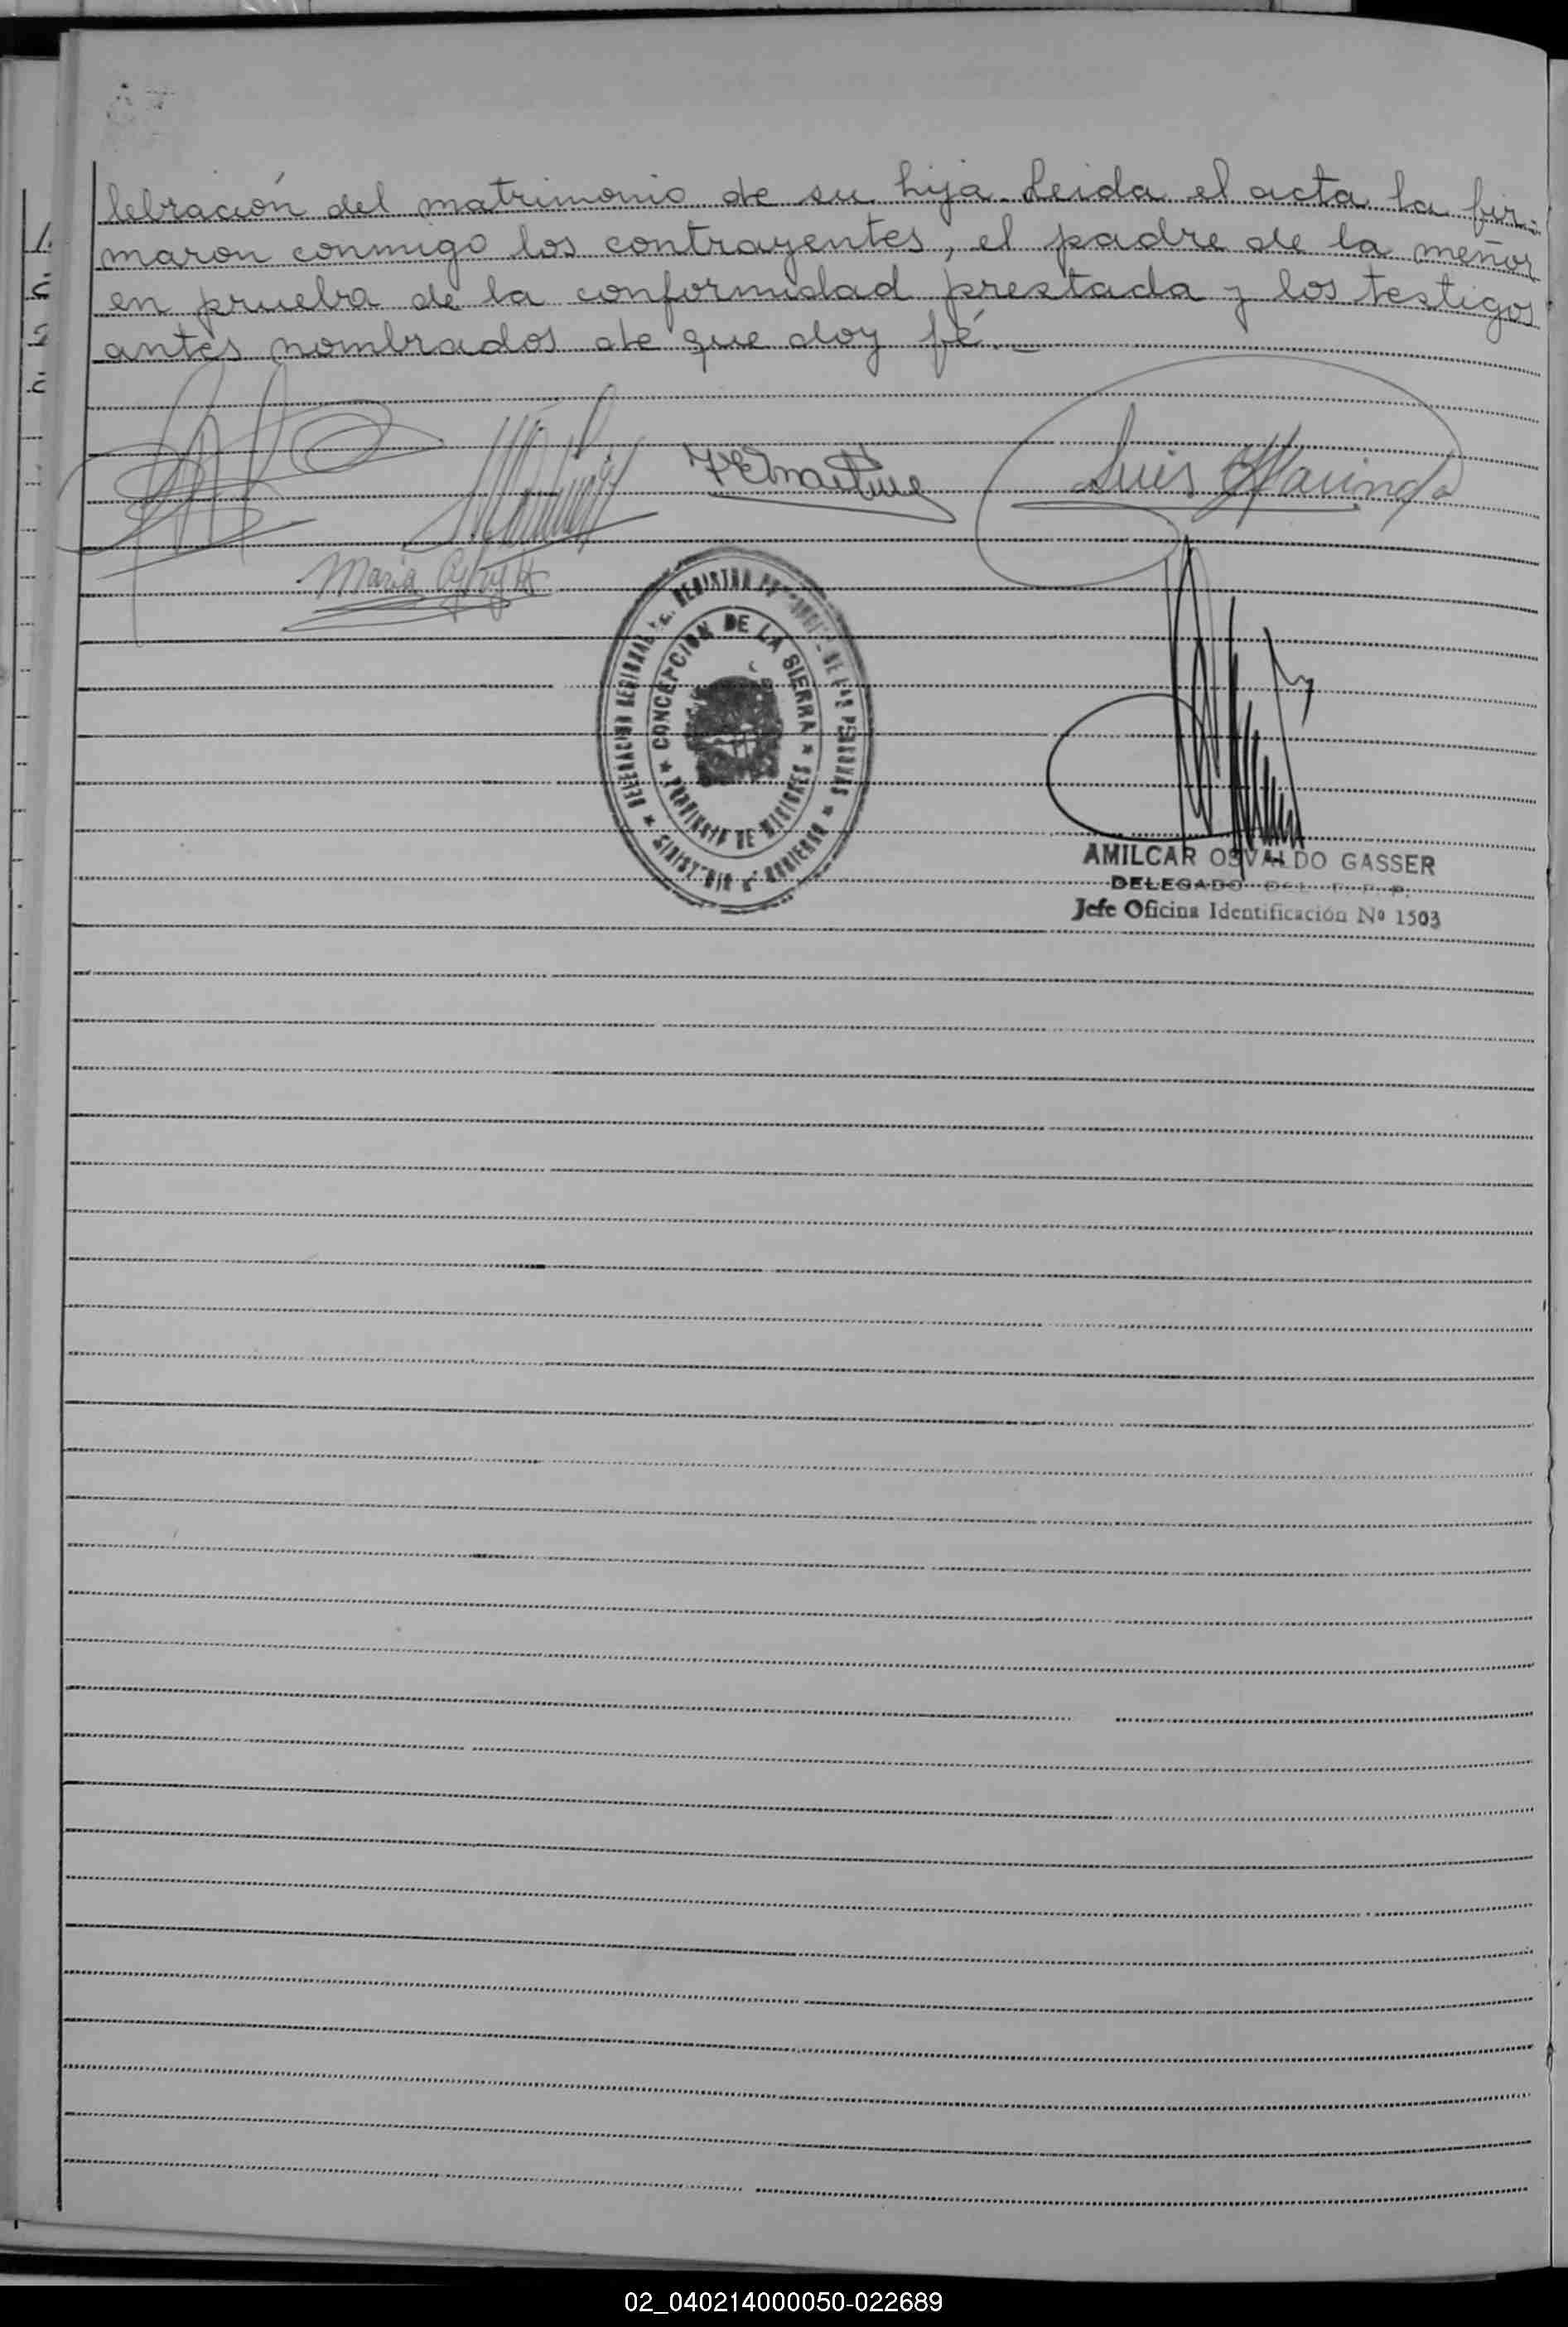 lebración del matrimonio de su hija. Leida el acta la fir-
maron conmigo los contrayentes, el padre de la menor
en prueba de la conformidad prestada y los testigos
antes nombrados de que doy fé.-
Luis
Maria
REGISTRO DE LAS PERSONAS
CONCEPCION DE LA SIERRA
PROVINCIA DE MISIONES
AMILCAR OSVALDO GASSER
DELEGADO DEL R. P. P.
Jefe Oficina Identificación Nº 1503
02_040214000050-022689